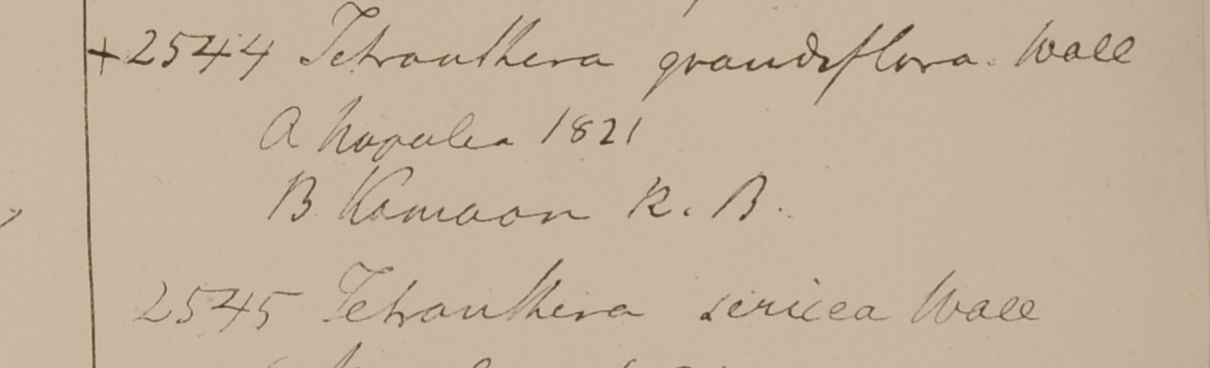 +2544 Tetranthera grandiflora. Wall
A Napalia 1821
B Kamaon R. B.
2545 Tetranthera sericea Wall